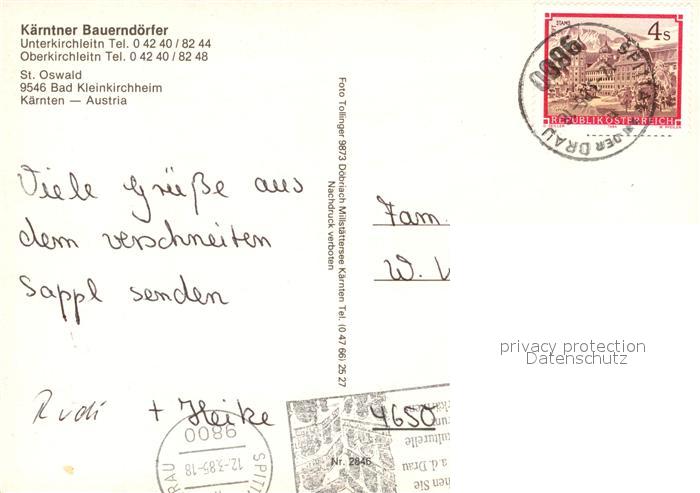 Kärntner Bauerndörfer
Unterkirchleitn Tel. 0 42 40 / 82 44
Oberkirchleitn Tel. 0 42 40 / 82 48
St. Oswald
9546 Bad Kleinkirchheim
Kärnten — Austria
STAMS
4s
REPUBLIK ÖSTERREICH
9800
SPITTAL AN DER DRAU
Foto Tollinger 9873 Döbriach Millstättersee Kärnten Tel. (0 47 66) 25 27
Nachdruck verboten
Viele Grüße aus
dem verschneiten
Sappl senden
Rudi + Heike
Fam.
W.
4650
privacy protection
Datenschutz
Nr. 2846
9800
12-3.85-18
SPITT
RAU
kulturelle
a.d. Drau
hen Sie